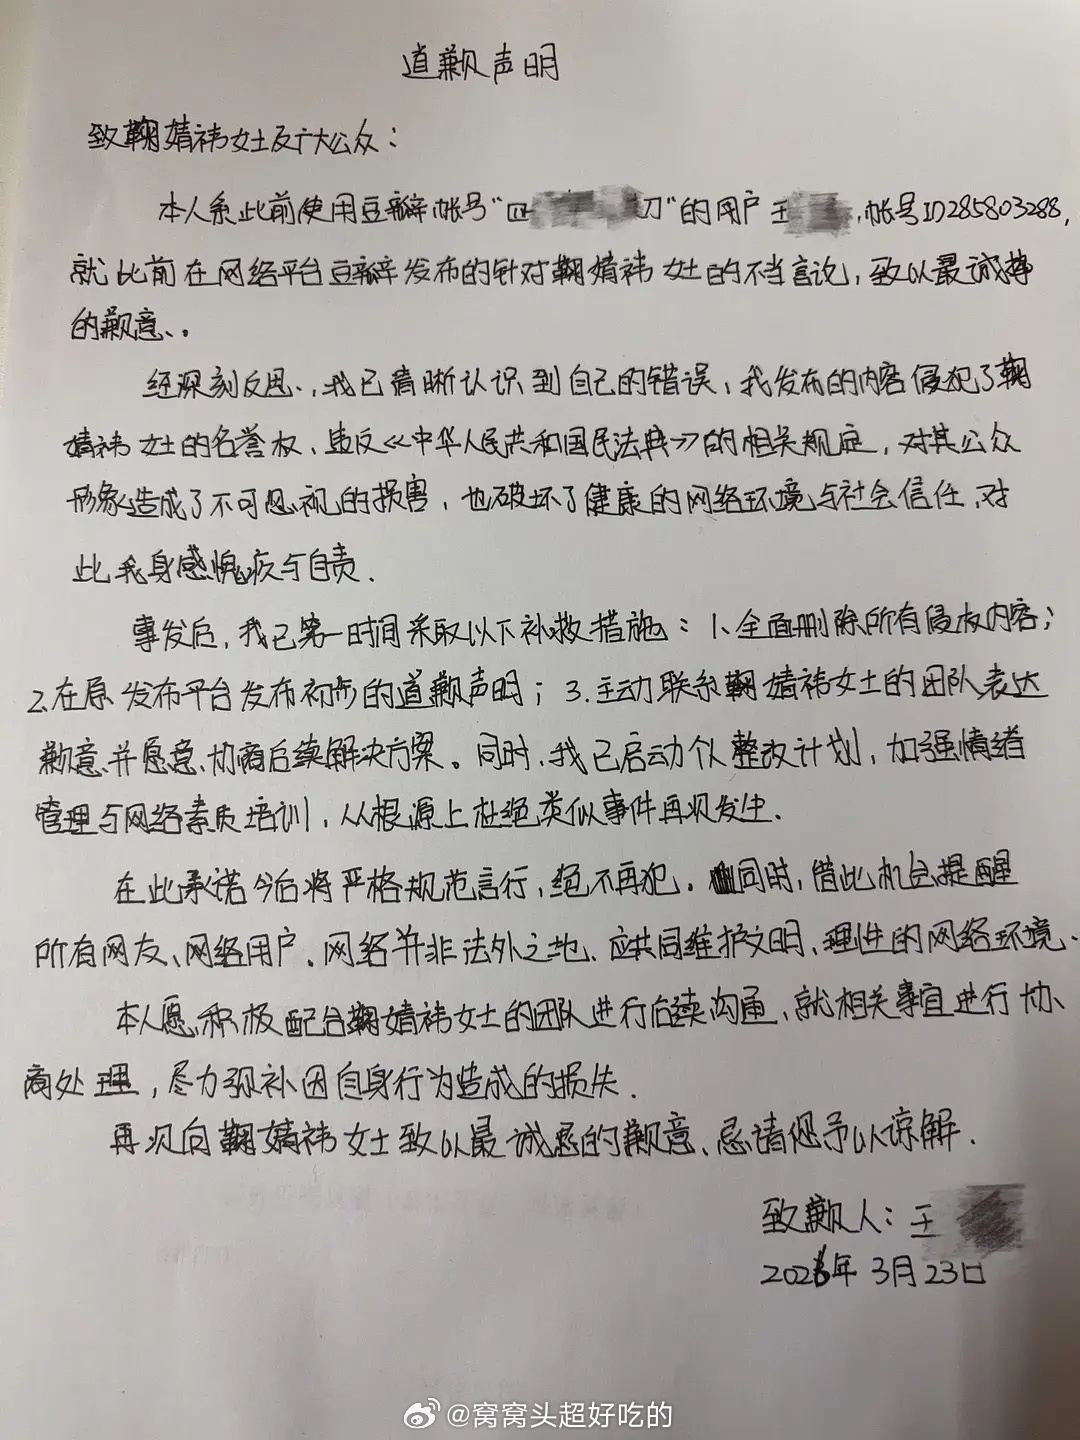 道歉声明
致鞠婧祎女士及广大公众：
本人系此前使用豆瓣帐号“四 切”的用户王 ，帐号ID285803288,
就此前在网络平台豆瓣发布的针对鞠婧祎女士的不当言论，致以最诚挚
的歉意、。
经深刻反思，我已清晰认识到自己的错误，我发布的内容侵犯了鞠
婧祎女士的名誉权，违反《中华人民共和国民法典》的相关规定，对其公众
形象造成了不可忽视的损害，也破坏了健康的网络环境与社会信任，对
此我身感愧疚与自责.
事发后，我已第一时间采取以下补救措施：1、全面删除所有侵权内容；
2.在原发布平台发布初步的道歉声明；3.主动联系鞠婧祎女士的团队表达
歉意并愿意协商后续解决方案。同时，我已启动个人整改计划，加强情绪
管理与网络素质培训，从根源上杜绝类似事件再次发生.
在此承诺今后将严格规范言行，绝不再犯。同时，借此机会提醒
所有网友、网络用户.网络并非法外之地、应共同维护文明、理性的网络环境.
本人愿积极配合鞠婧祎女士的团队进行后续沟通，就相关事宜进行协
商处理，尽力弥补因自身行为造成的损失.
再次向鞠婧祎女士致以最诚恳的歉意，恳请您予以谅解.
致歉人：王
2026年3月23日
@窝窝头超好吃的